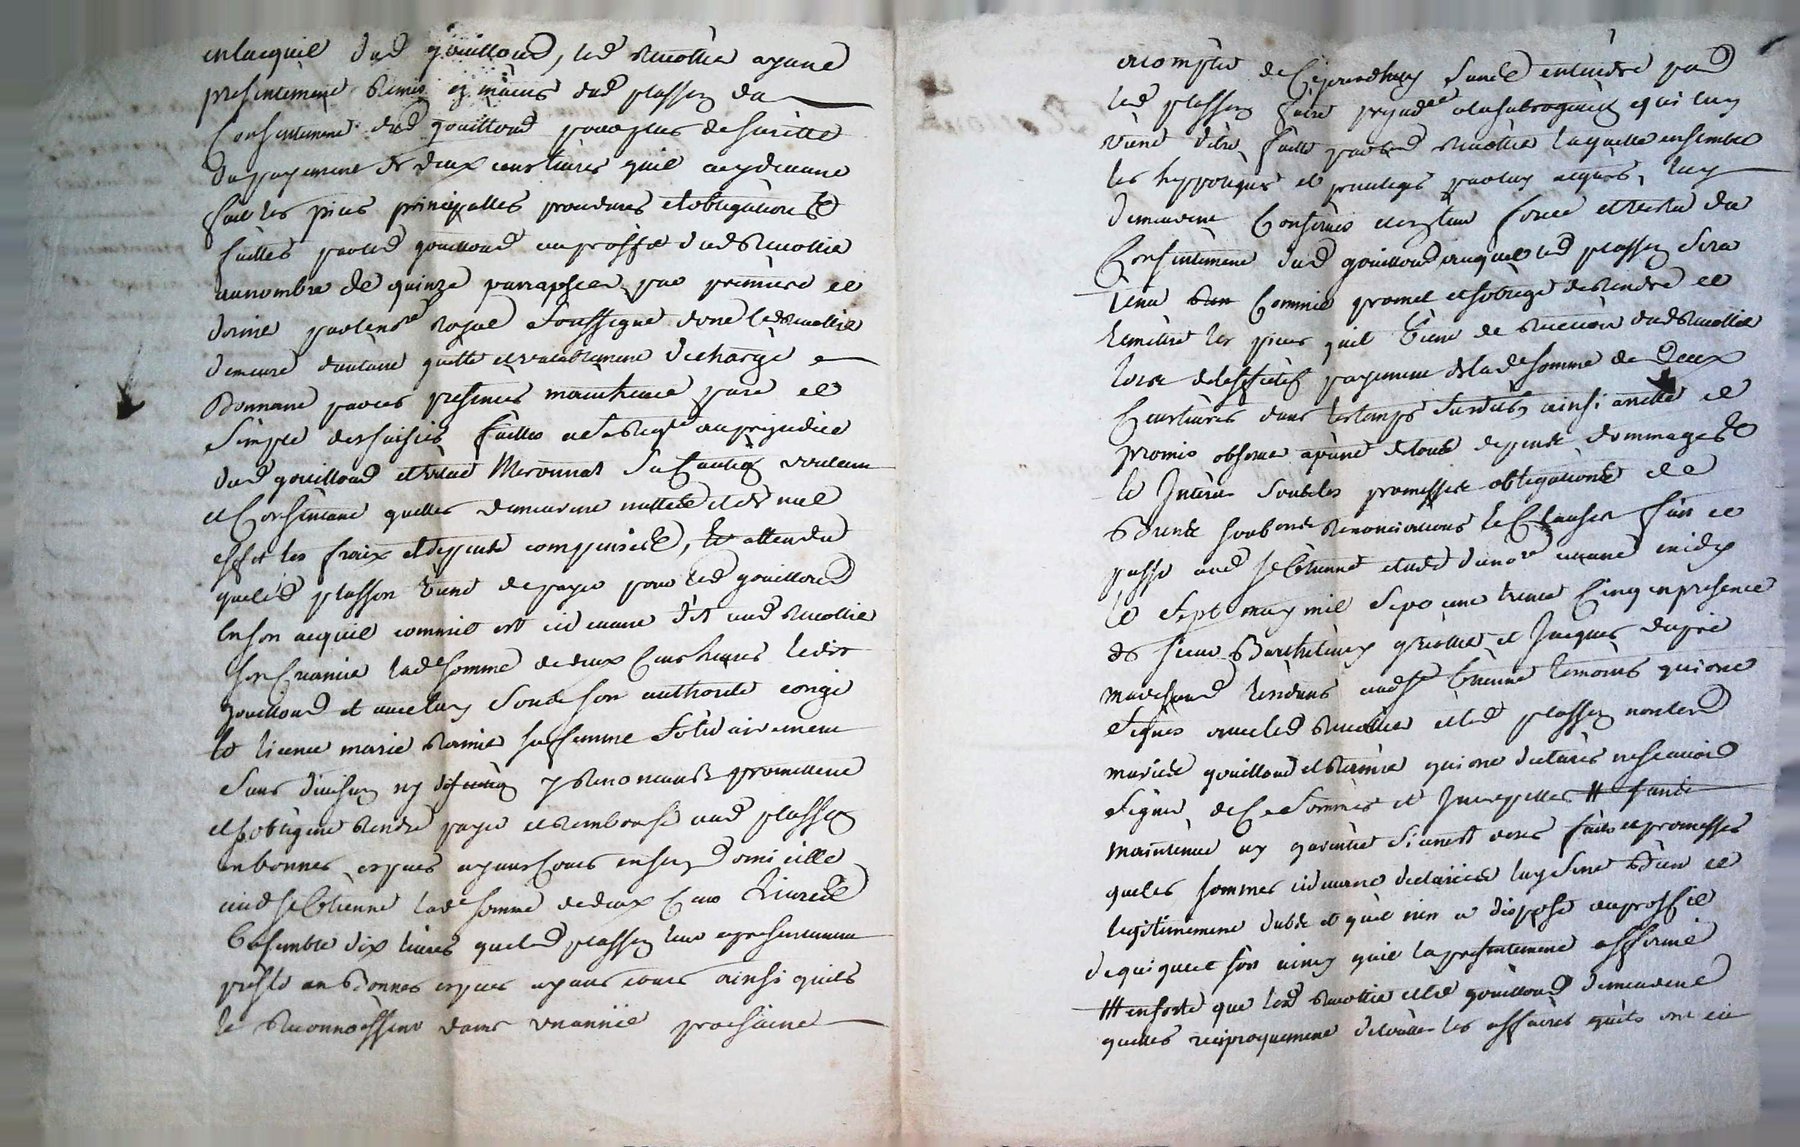 enlacquit dud gouilloud, led Revollie ayant
presentement Remis ez mains dud plasson du
Consentement dud gouilloud pour plus de surette
du payement de deux cens livres quil a cy devant
fait les pieces principalles procedures et obligations
faittes par led gouilloud au proffit dud Revollie
au nombre de quinze parraphees par premiere et
derniere par le nore Royal soussigné dont led Revollie
demeure d'autant quitte et valablement decharge
Donnant par ces presentes mainlevée pure et
simple des saisies faittes a sa Reqte au prejudice
dud gouilloud et
et Consentant quelles demeurent nulles et de nul
effet les fraix et depends compensés, et attendu
que led plasson vient de payer pour led gouilloud
en son acquit comme est cy devant dit aud Revollie
son Creancier lade somme de deux Cens livres ledit
gouilloud et avec luy sous son authorité congé
et licence marie Ramier sa femme solidairement
sans division ny discution y Renonceants promettent
et sobligent Rendre payer et Rembourser aud plasson
en bonnes especes ayants Cours en son domicille
aud St Etienne lade somme de deux Cens livres
Ensemble dix livres que led plasson leur a presentement
presté en bonnes especes ayants cours ainsi quils
le Reconnoissent dans une année prochaine
a compter de Cejourdhuy sans entendre par
led plasson faire prejudce a la subrogation qui luy
vient d'être faitte par led Revollie laquelle ensemble
les hyppoteques et privileges par luy acquis, luy
demeurent Conservés et en leur force et vertu du
Consentement dud gouilloud auquel led plasson sera
tenu Comme promet et soblige de Rendre et
Remettre les pieces quil vient de Recevoir dud Revollie
lors de leffectif payement de lade somme de deux
Cens livres dans le temps susdit ainsi arretté et
promis observer a peine de tous depends dommages
et Interets sous les promesses obligations et
Renonciations et Clauses fait et
passé aud St Etienne etude dud nore avant midy
le sept may mil sept cent trente Cinq en presence
de sieur Barthelemy et Jacques dupré
marchand Residans aud St Etienne temoins qui ont
signés avec led Revollie et led plasson non led
mariés gouilloud et Ramier qui ont declarés ne scavoir
signer de Ce sommés et Interpellés # sans
maintenue ny garantie si ce nest de ses faits et promesses
que les sommes cy devant declarées luy sont bien et
legitimement dubes et quil nen a disposé au proffit
de qui que ce soit ainsy quil la presentement affirmé
# ensorte que led Revollie et led gouilloud demeurent
quittes reciproquement de toutes les affaires quils ont eu